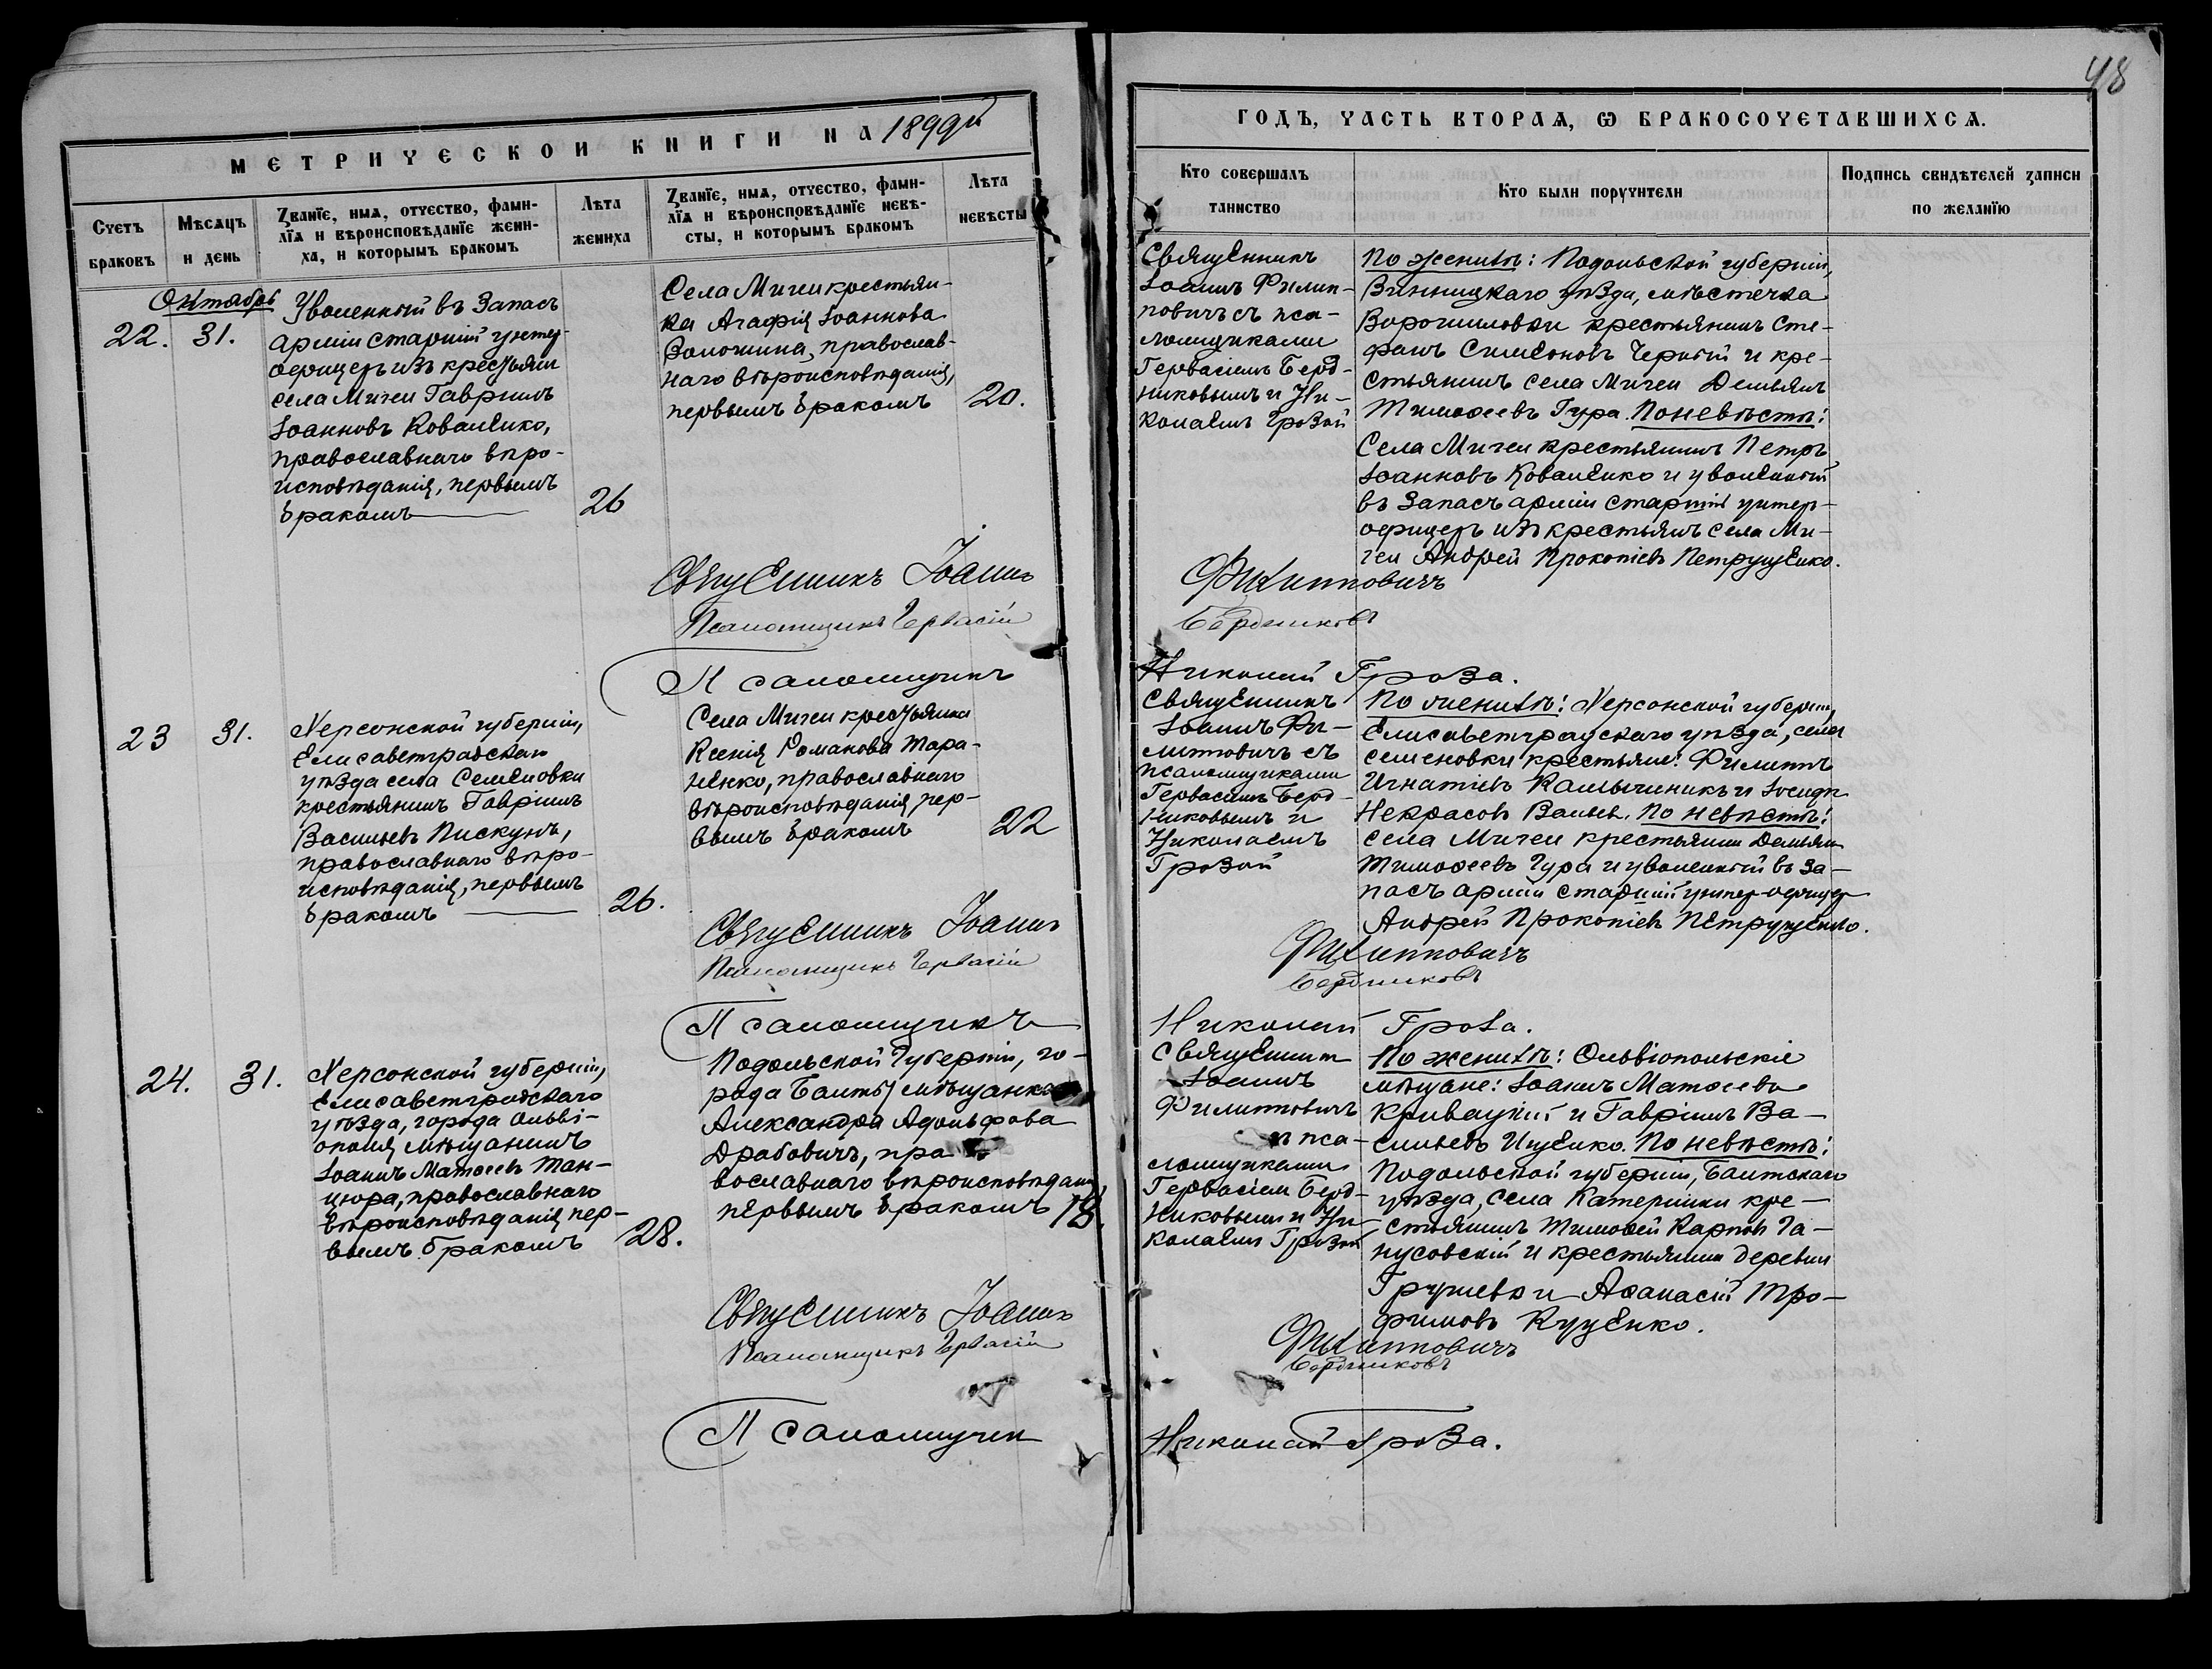 48
МЕТРИЧЕСКОЙ КНИГИ НА 1899й
ГОДЪ, ЧАСТЬ ВТОРАЯ, Ѡ БРАКОСОЧЕТАВШИХСЯ.
Счетъ браковъ
Мѣсяцъ и день
Званїе, имя, отчество, фами-
лїя и вѣроисповѣданїе жени-
ха, и которымъ бракомъ
Лѣта жениха
Званїе, имя, отчество, фами-
лїя и вѣроисповѣданїе невѣ-
сты, и которымъ бракомъ
Лѣта невѣсты
Кто совершалъ таинство
Кто были поручители
Подпись свидѣтелей записи по желанїю
Октябрь
22. 31.
Уволенный въ запасъ
арміи старшій унтер-
офицеръ изъ крестьян
села Мигеи Гавріилъ
Іоанновъ Коваленко,
православнаго вѣро-
исповѣданія, первымъ
бракомъ
26
Села Мигеи крестьян-
ка Агафія Іоаннова
Волошина, православ-
наго вѣроисповѣданія,
первымъ бракомъ
20.
Священникъ
Іоаннъ Филип-
повичъ съ пса-
ломщиками
Гервасіемъ Берд-
никовымъ и Ни-
колаемъ Грозой
По женихѣ: Подольской губерніи,
Винницкаго уѣзда, мѣстечка
Ворошиловки крестьянинъ Сте-
фанъ Симеоновъ Черный и кре-
стьянинъ села Мигеи Демьянъ
Тимоѳеевъ Гура. По невѣстѣ:
Села Мигеи крестьянинъ Петръ
Іоанновъ Коваленко и уволенный
въ запасъ арміи старшій унтер-
офицеръ изъ крестьянъ села Ми-
геи Андрей Прокопіевъ Петрущенко.
Священникъ Іоаннъ Филипповичъ
Псаломщикъ Гервасій Бердниковъ
Псаломщикъ Николай Гроза.
23 31.
Херсонской губерніи,
Елисаветградскаго
уѣзда села Семеновки
крестьянинъ Гавріилъ
Васильевъ Пискунъ,
православнаго вѣро-
исповѣданія, первымъ
бракомъ
26.
Села Мигеи крестьянка
Ксенія Романова Тара-
ненко, православнаго
вѣроисповѣданія пер-
вымъ бракомъ
22
Священникъ
Іоаннъ Фи-
липповичъ съ
псаломщиками
Гервасіемъ Берд-
никовымъ и
Николаемъ
Грозой
По женихѣ: Херсонской губерніи,
Елисаветградскаго уѣзда, села
Семеновки крестьяне: Филиппъ
Игнатіевъ и Іосифъ
Некрасовъ. По невѣстѣ:
села Мигеи крестьянин Демьян
Тимоѳеевъ Гура и уволенный въ за-
пасъ арміи старшій унтер-офицер
Андрей Прокопіевъ Петрущенко.
Священникъ Іоаннъ Филипповичъ
Псаломщикъ Гервасій Бердниковъ
Псаломщикъ Николай Гроза.
24. 31.
Херсонской губерніи,
Елисаветградскаго
уѣзда, города Ольві-
ополя мѣщанинъ
Іоаннъ Матѳеевъ Тан-
цюра, православнаго
вѣроисповѣданія пер-
вымъ бракомъ
28.
Подольской Губерніи, го-
рода Балты мѣщанка
Александра Адольфова
Драбовичъ, пра-
вославнаго вѣроисповѣданія
первымъ бракомъ
18.
Священникъ
Іоаннъ
Филипповичъ
и пса-
ломщиками
Гервасіем Берд-
никовымъ и Ни-
колаемъ Грозой
По женихѣ: Ольвіопольскіе
мѣщане: Іоаннъ Матѳеевъ
Кривацкій и Гавріилъ Ва-
сильевъ Ищенко. По невѣстѣ:
Подольской губерніи, Балтскаго
уѣзда, села Катеринки кре-
стьянинъ Тимоѳей Карповъ Га-
нусовскій и крестьянин деревни
Грушевки Аѳанасій Тро-
фимовъ Куценко.
Священникъ Іоаннъ Филипповичъ
Псаломщикъ Гервасій Бердниковъ
Псаломщик Николай Гроза.